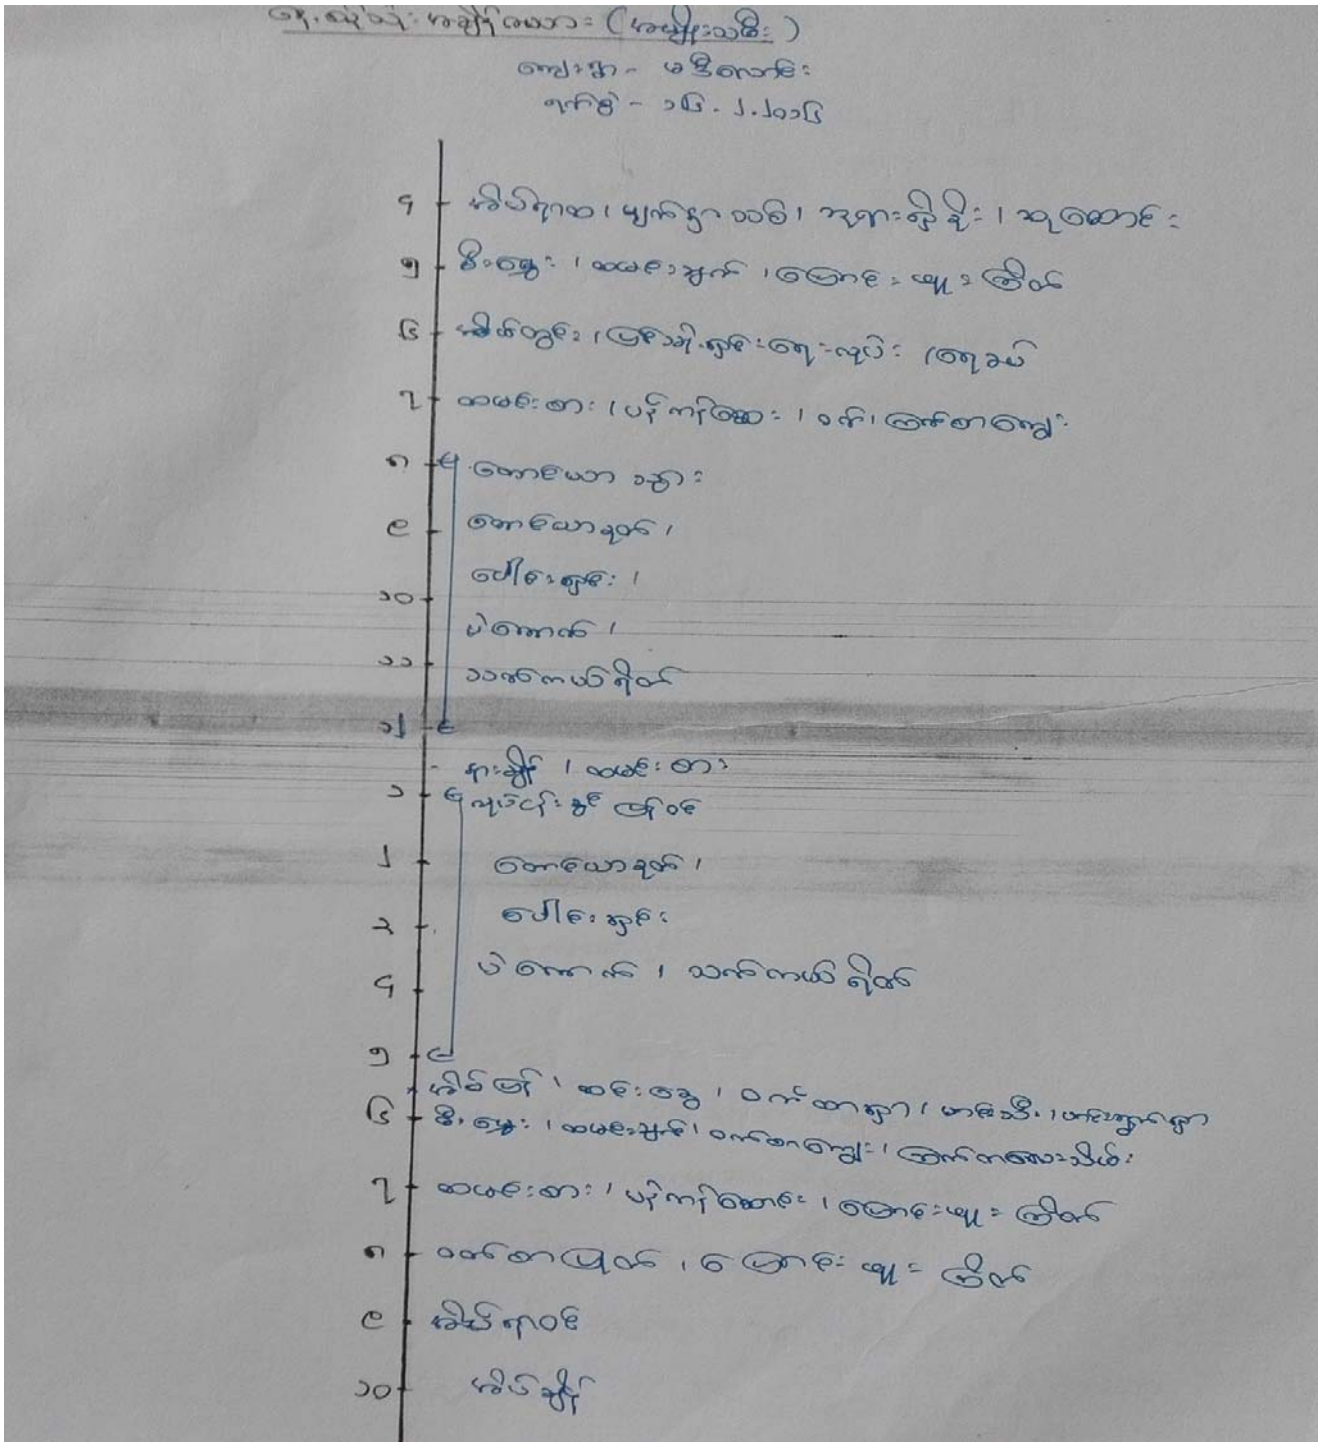 နေ့စဉ်သုံး အချိန်ဇယား (အမျိုးသမီး)
ကျေးရွာ -
ရက်စွဲ - ၁၆.၂.၂၀၁၆
၄ အိပ်ရာထ၊ မျက်နှာသစ်၊ ဘုရားရှိခိုး၊ ဆုတောင်း
၅ မီးမွှေး၊ ထမင်းချက်၊ ပြောင်းဖူးကြိတ်
၆ အိမ်တွင်း၊ ပြင်သန့်ရှင်းရေးလုပ်၊ ရေခပ်
၇ ထမင်းစား၊ ပန်ကန်ဆေး၊ ဝက်၊ ကြက်စာကျွေး
၈ တောင်ယာသွား
၉ တောင်ယာခုတ်၊
ပေါင်းရှင်း၊
၁၀
ပဲကောက်၊
၁၁
သက်ကယ်ရိတ်
၁၂
နားချိန်၊ ထမင်းစား
၁ လုပ်ငန်းခွင်ပြန်ဝင်
၂ တောင်ယာခုတ်၊
၃ ပေါင်းရှင်း
၄ ပဲကောက်၊ သက်ကယ်ရိတ်
၅
အိမ်ပြန်၊ ထင်းခွေ၊ ဝက်စာရှာ၊ ဟင်းသီး၊ ဟင်းရွက်ရှာ
၆ မီးမွှေး၊ ထမင်းချက်၊ ဝက်စာကျွေး၊ ကြက်ကလေးသိမ်း
၇ ထမင်းစား၊ ပန်ကန်ဆောင်း၊ ပြောင်းဖူးကြိတ်
၈ ဝက်စာပြုတ်၊ ပြောင်းဖူးကြိတ်
၉ အိပ်ရာဝင်
၁၀ အိပ်ချိန်